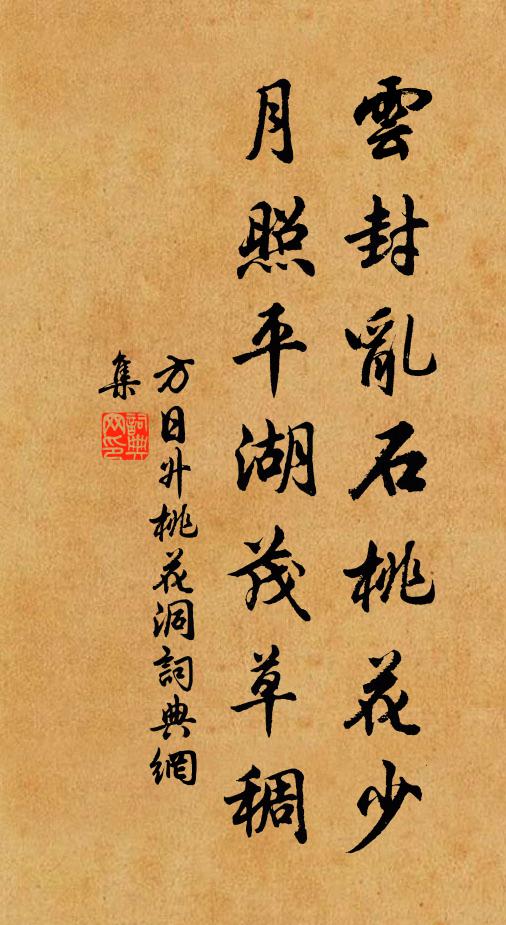 雲封亂石桃花少
月照平湖茂草稠
方日升桃花洞詞典網
集
詞典網印